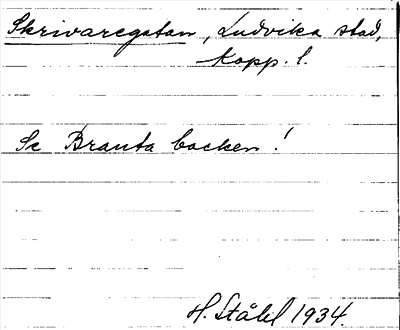 Skrivaregatan, Ludvika stad,
Kopp. l.
Se Branta backen!
H. Ståhl 1934